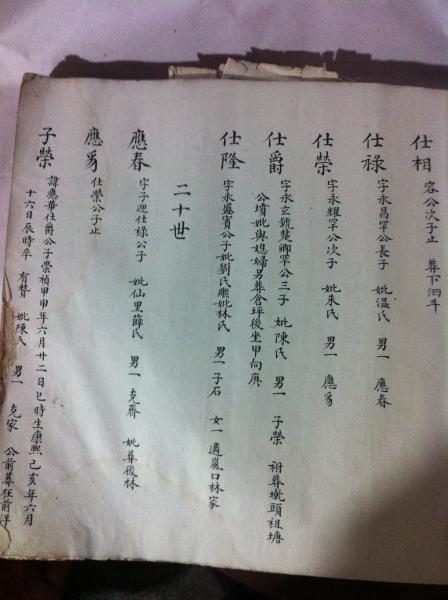 仕相 容公次子止 葬下泗斗
仕祿 字永昌罕公長子 妣溫氏 男一 應春
仕榮 字永耀罕公次子 妣朱氏 男一 應豸
仕爵 字永立號楚卿罕公三子 妣陳氏 男一 子榮 祔葬墘頭祖塘
公墳妣與媳婦男葬含坪後坐甲向庚
仕隆 字永盛賓公子妣劉氏繼妣林氏 男一 子石 女一 適嵐口林家
二十世
應春 字子迎仕祿公子 妣仙里薛氏 男一 克齋 妣葬後林
應豸 仕榮公子止
子榮 諱應華仕爵公子崇禎甲申年六月廿二日巳時生康熙己亥年六月
十六日辰時卒 有贊 妣陳氏 男一 克家 公前葬在前洋